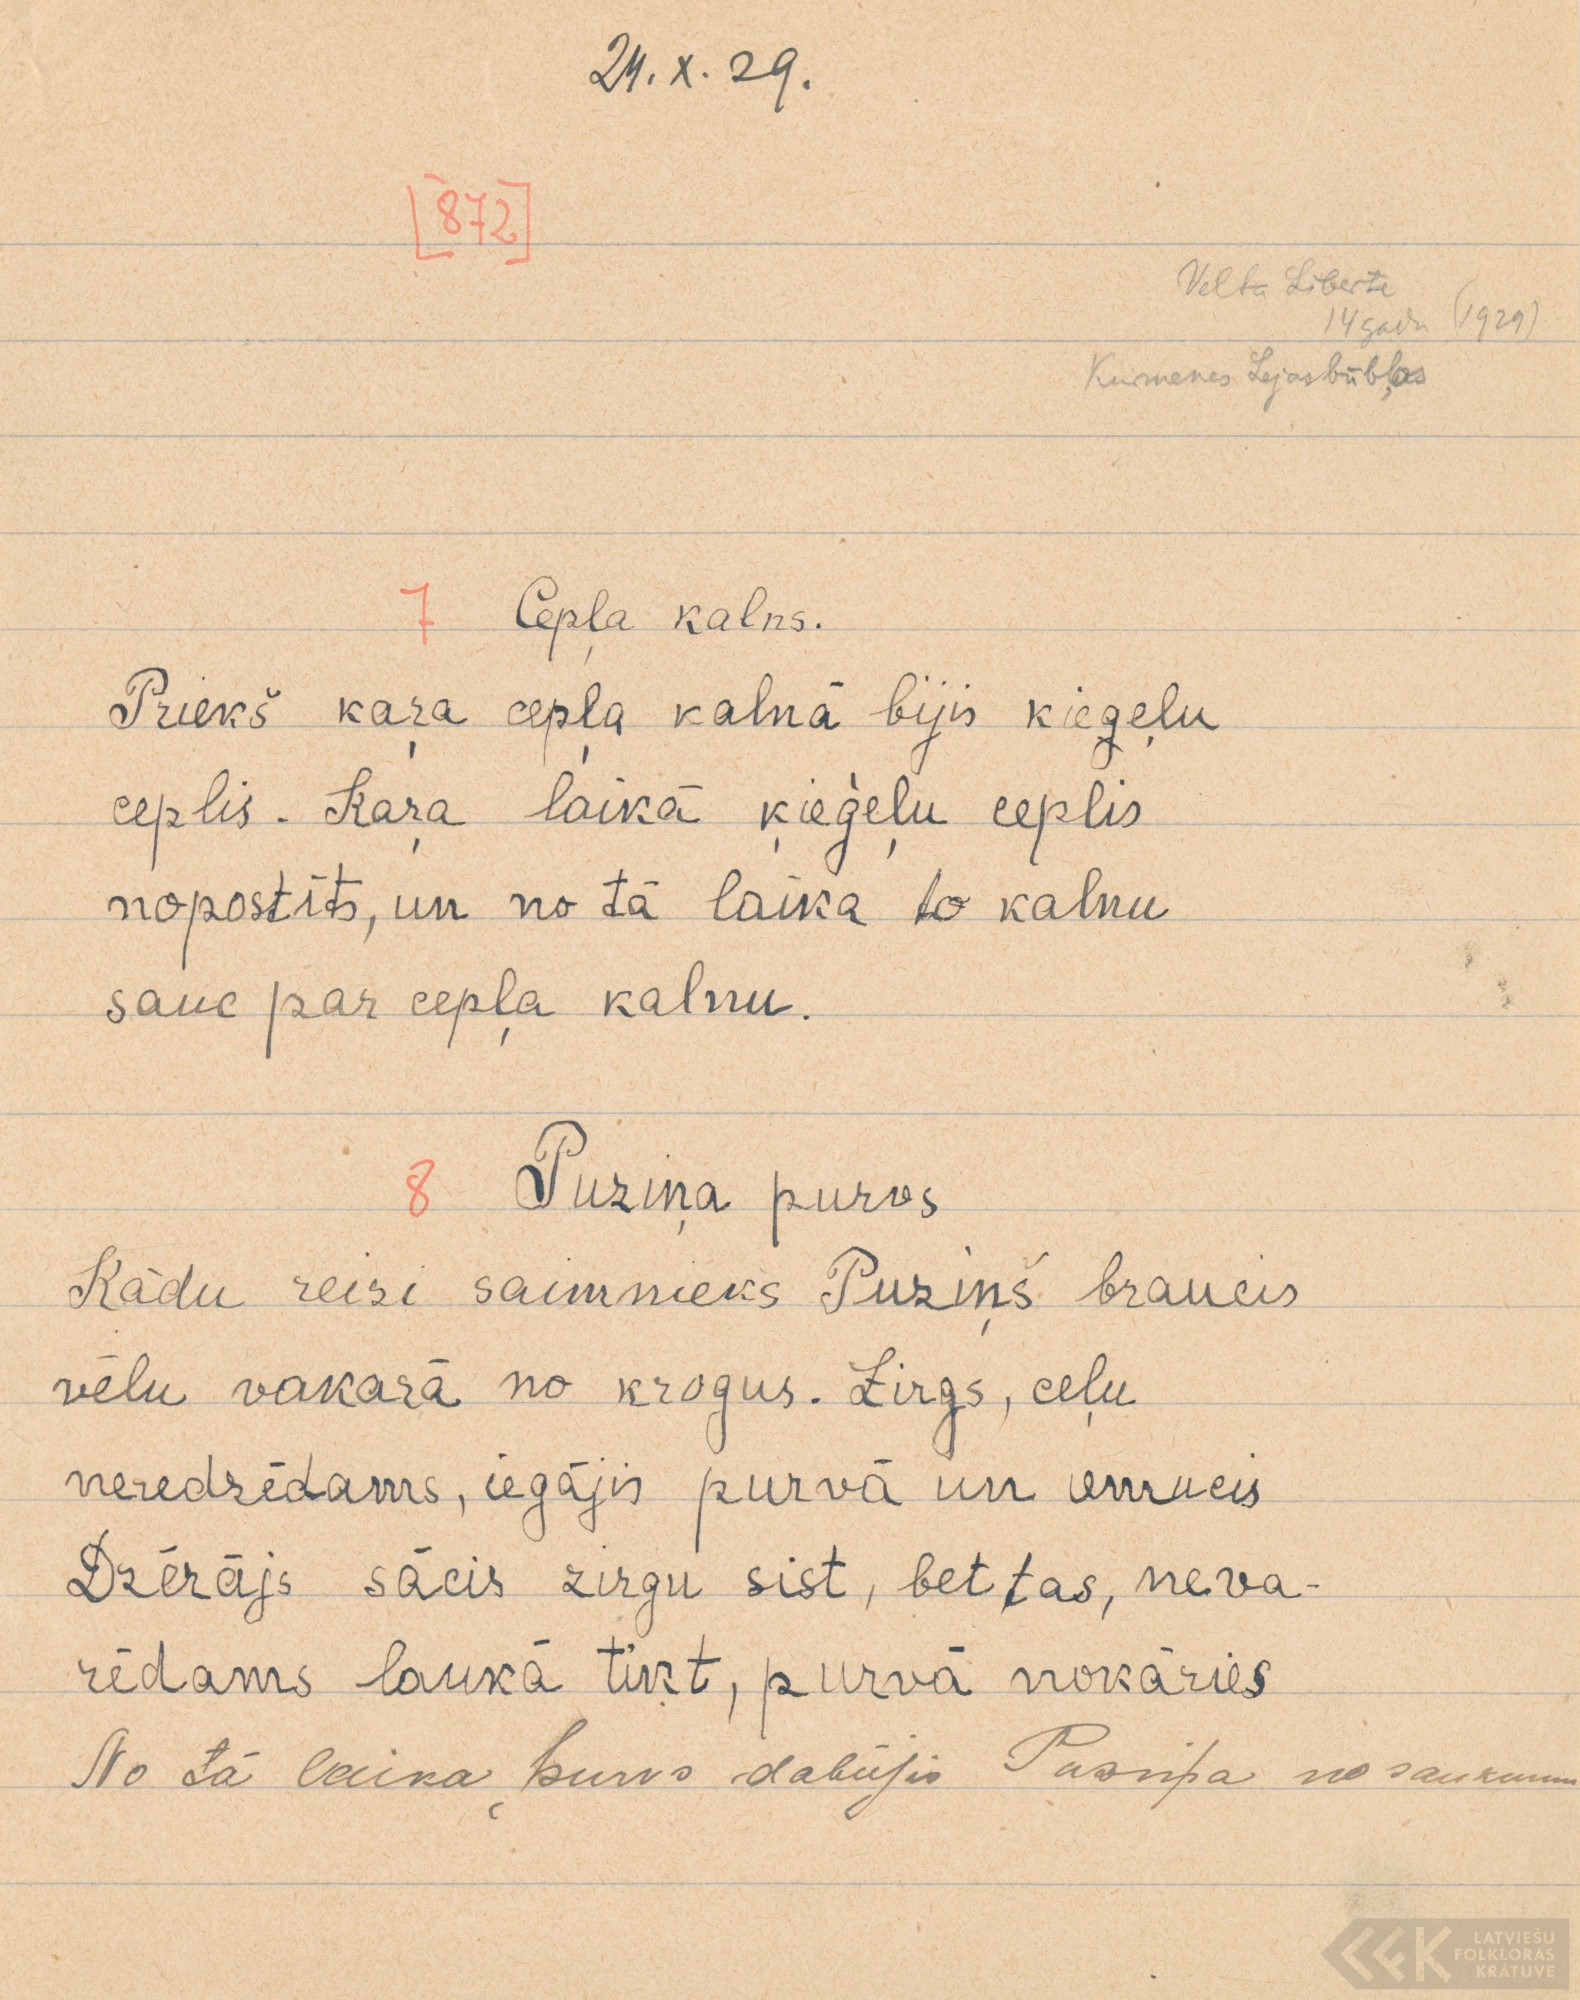 24. X. 29.
[872]
Velta Līberte
14 gadu (1929)
Kurmenes Lejasbūbļas
7 Cepļa kalns.
Priekš kaŗa cepļa kalnā bijis kieģeļu
ceplis. Kaŗa laikā ķieģeļu ceplis
nopostīts, un no tā laika to kalnu
sauc par cepļa kalnu.
8 Puziņa purvs
Kādu reizi saimnieks Puziņš braucis
vēlu vakarā no krogus. Zirgs, ceļu
neredzēdams, iegājis purvā un
Dzērājs sācis zirgu sist, bet tas, neva-
rēdams laukā tikt, purvā nokāries
No tā laika, purvs dabūjis Puziņa nosaukumu
LATVIEŠU
FOLKLORAS
KRĀTUVE